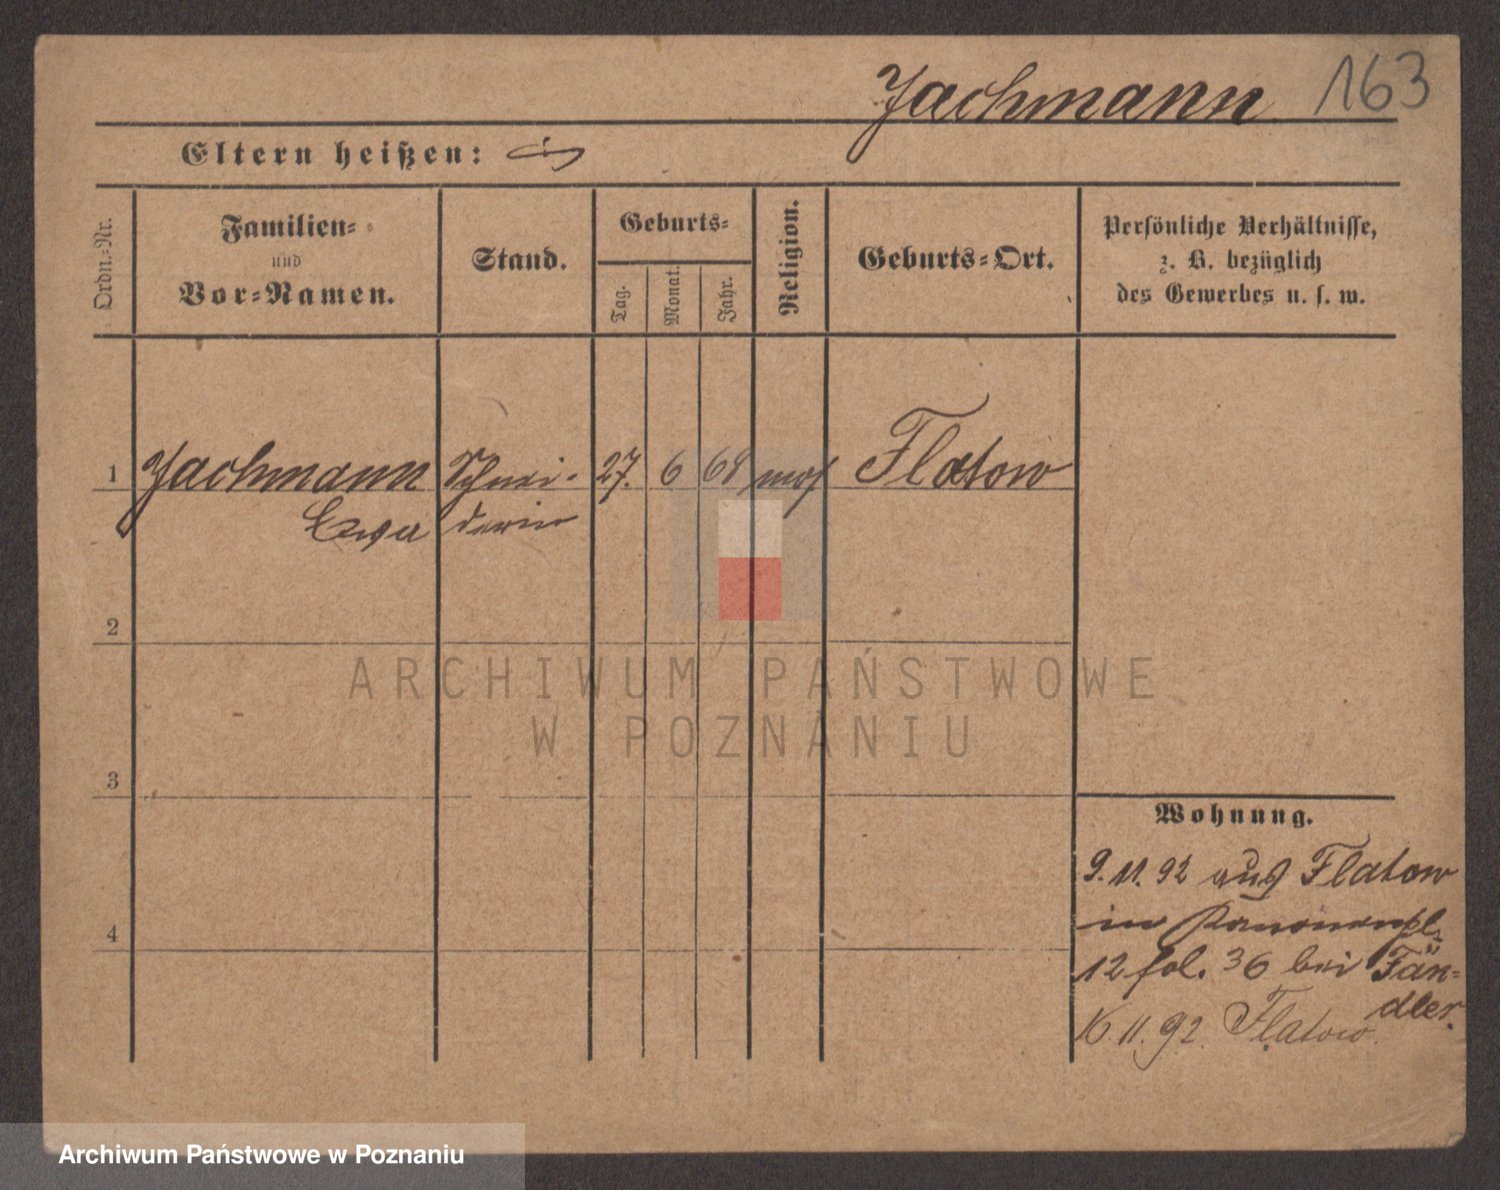 Jachmann 163
Eltern heißen:
Ordn.=Nr.
Familien=
und
Vor=Namen.
Stand.
Geburts=
Tag.
Monat.
Jahr.
Religion.
Geburts=Ort.
Persönliche Verhältnisse,
z. B. bezüglich
des Gewerbes u. s. w.
1 Jachmann Schnei- 27. 6 68 mos Flatow
derin
2
3
4
Wohnung.
9.11.92 aus Flatow
in
12 fol. 36 bei Fän-
dler.
16.11.92 Flatow.
ARCHIWUM PAŃSTWOWE
W POZNANIU
Archiwum Państwowe w Poznaniu